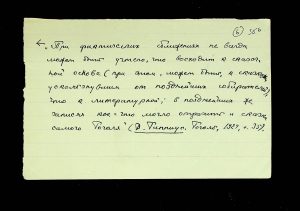 6 356
"При фактических сближениях не всегда
может быть учтено, что восходит к сказоч-
ной основе (при этом, может быть, и сказке,
ускользнувшей от позднейших собирателей),
что к литературной; в позднейших же
записях кое-что могло отразить и сказку
самого Гоголя" (В. Гиппиус, Гоголь, 1924, с. 35).